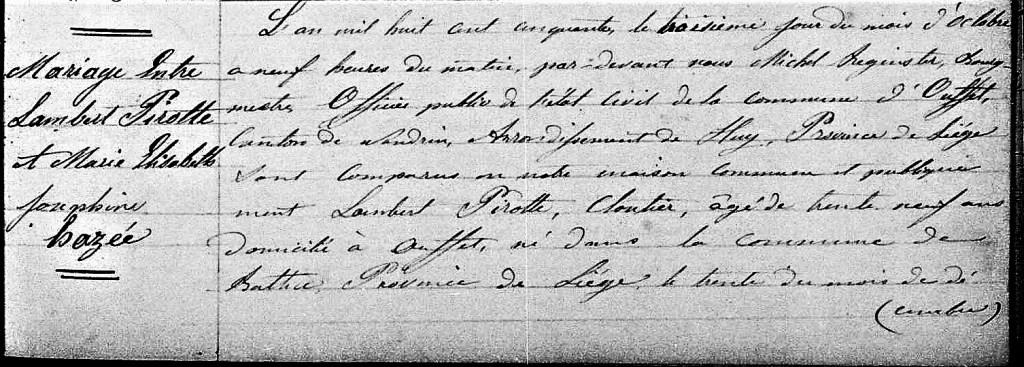 Mariage Entre
Lambert Pirotte
et Marie Elisabeth
Josephine
hazée
L'an mil huit cent cinquante, le troisième jour du mois d'Octobre
a neuf heures du matin, par-devant nous Michel Reginster, Bourg
mestre, Officier public de l'état Civil de la commune d'Ouffet,
Canton de Nandrin, Arrondissement de Huy, Province de Liége
Sont comparus en notre maison commune et publique
ment Lambert Pirotte, Cloutier, âgé de trente neuf ans
domicilié à Ouffet, né dans la commune de
Battice, Province de Liége, le trente du mois de dé
(cembre)